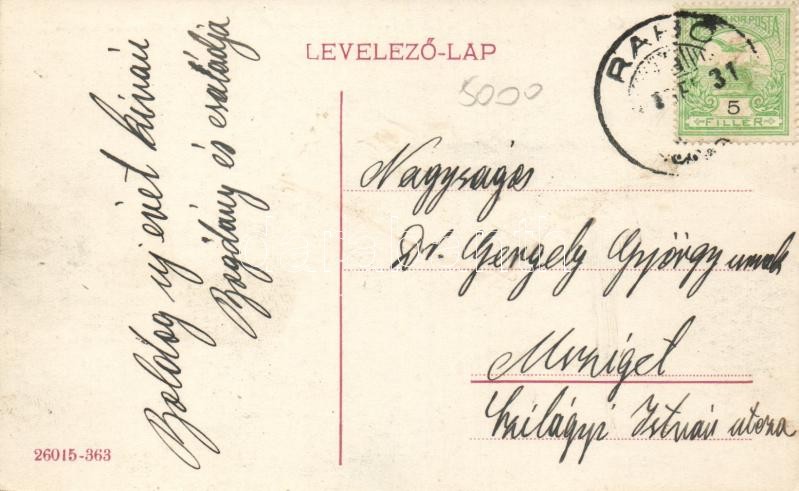 LEVELEZŐ-LAP
5000
RAHÓ
31
KIR. POSTA
5
FILLÉR
Boldog új évet kíván
Bogdány és családja
Nagyságos
Dr. Gergely György urnak
M.sziget
Szilágyi István utcza
26015-363